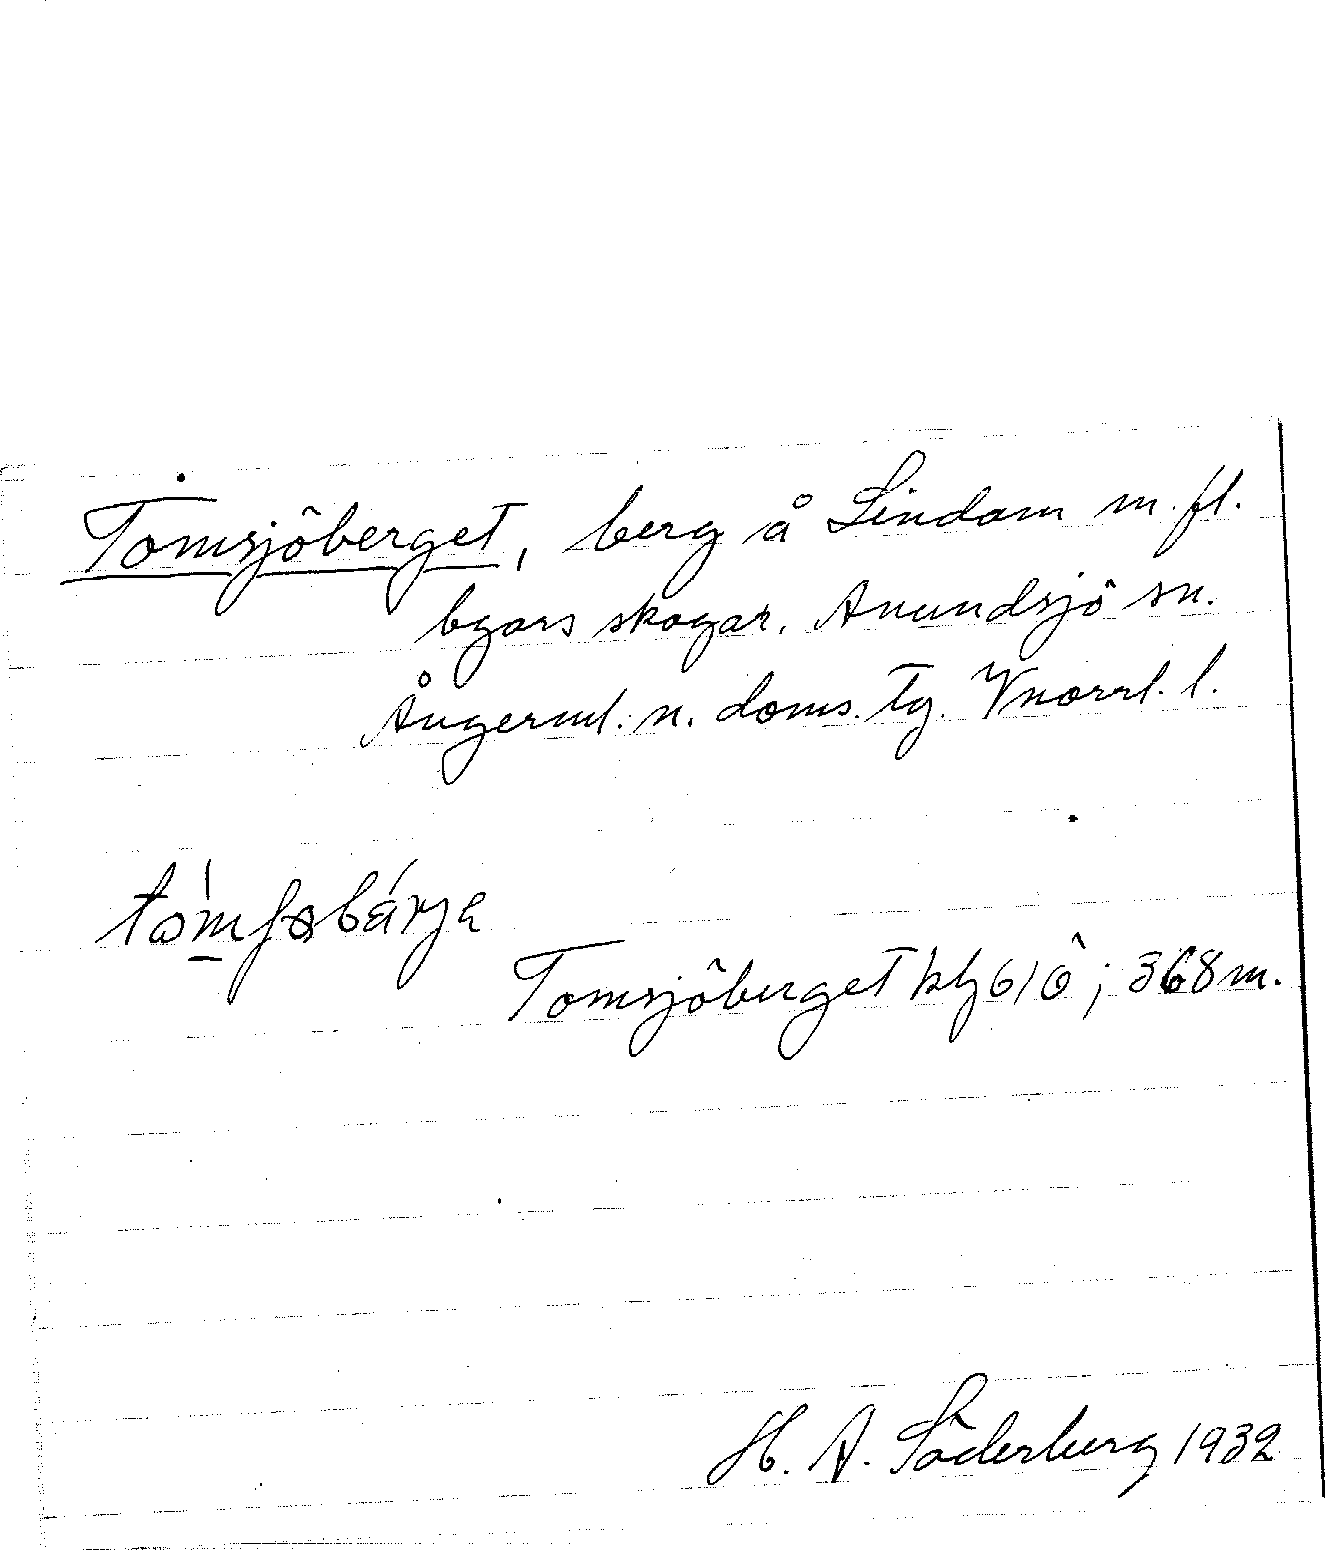 Tomsjöberget, berg å Lindom m. fl.
byars skogar. Anundsjö sn.
Ångerml. n. doms. tg. Vnorrl. l.
Tomsjöberget kbl 61 Ö; 368 m.
H. A. Söderberg 1932